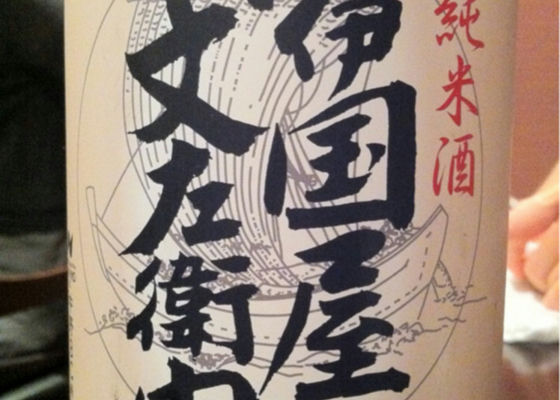 純米酒
伊国屋
文左衛